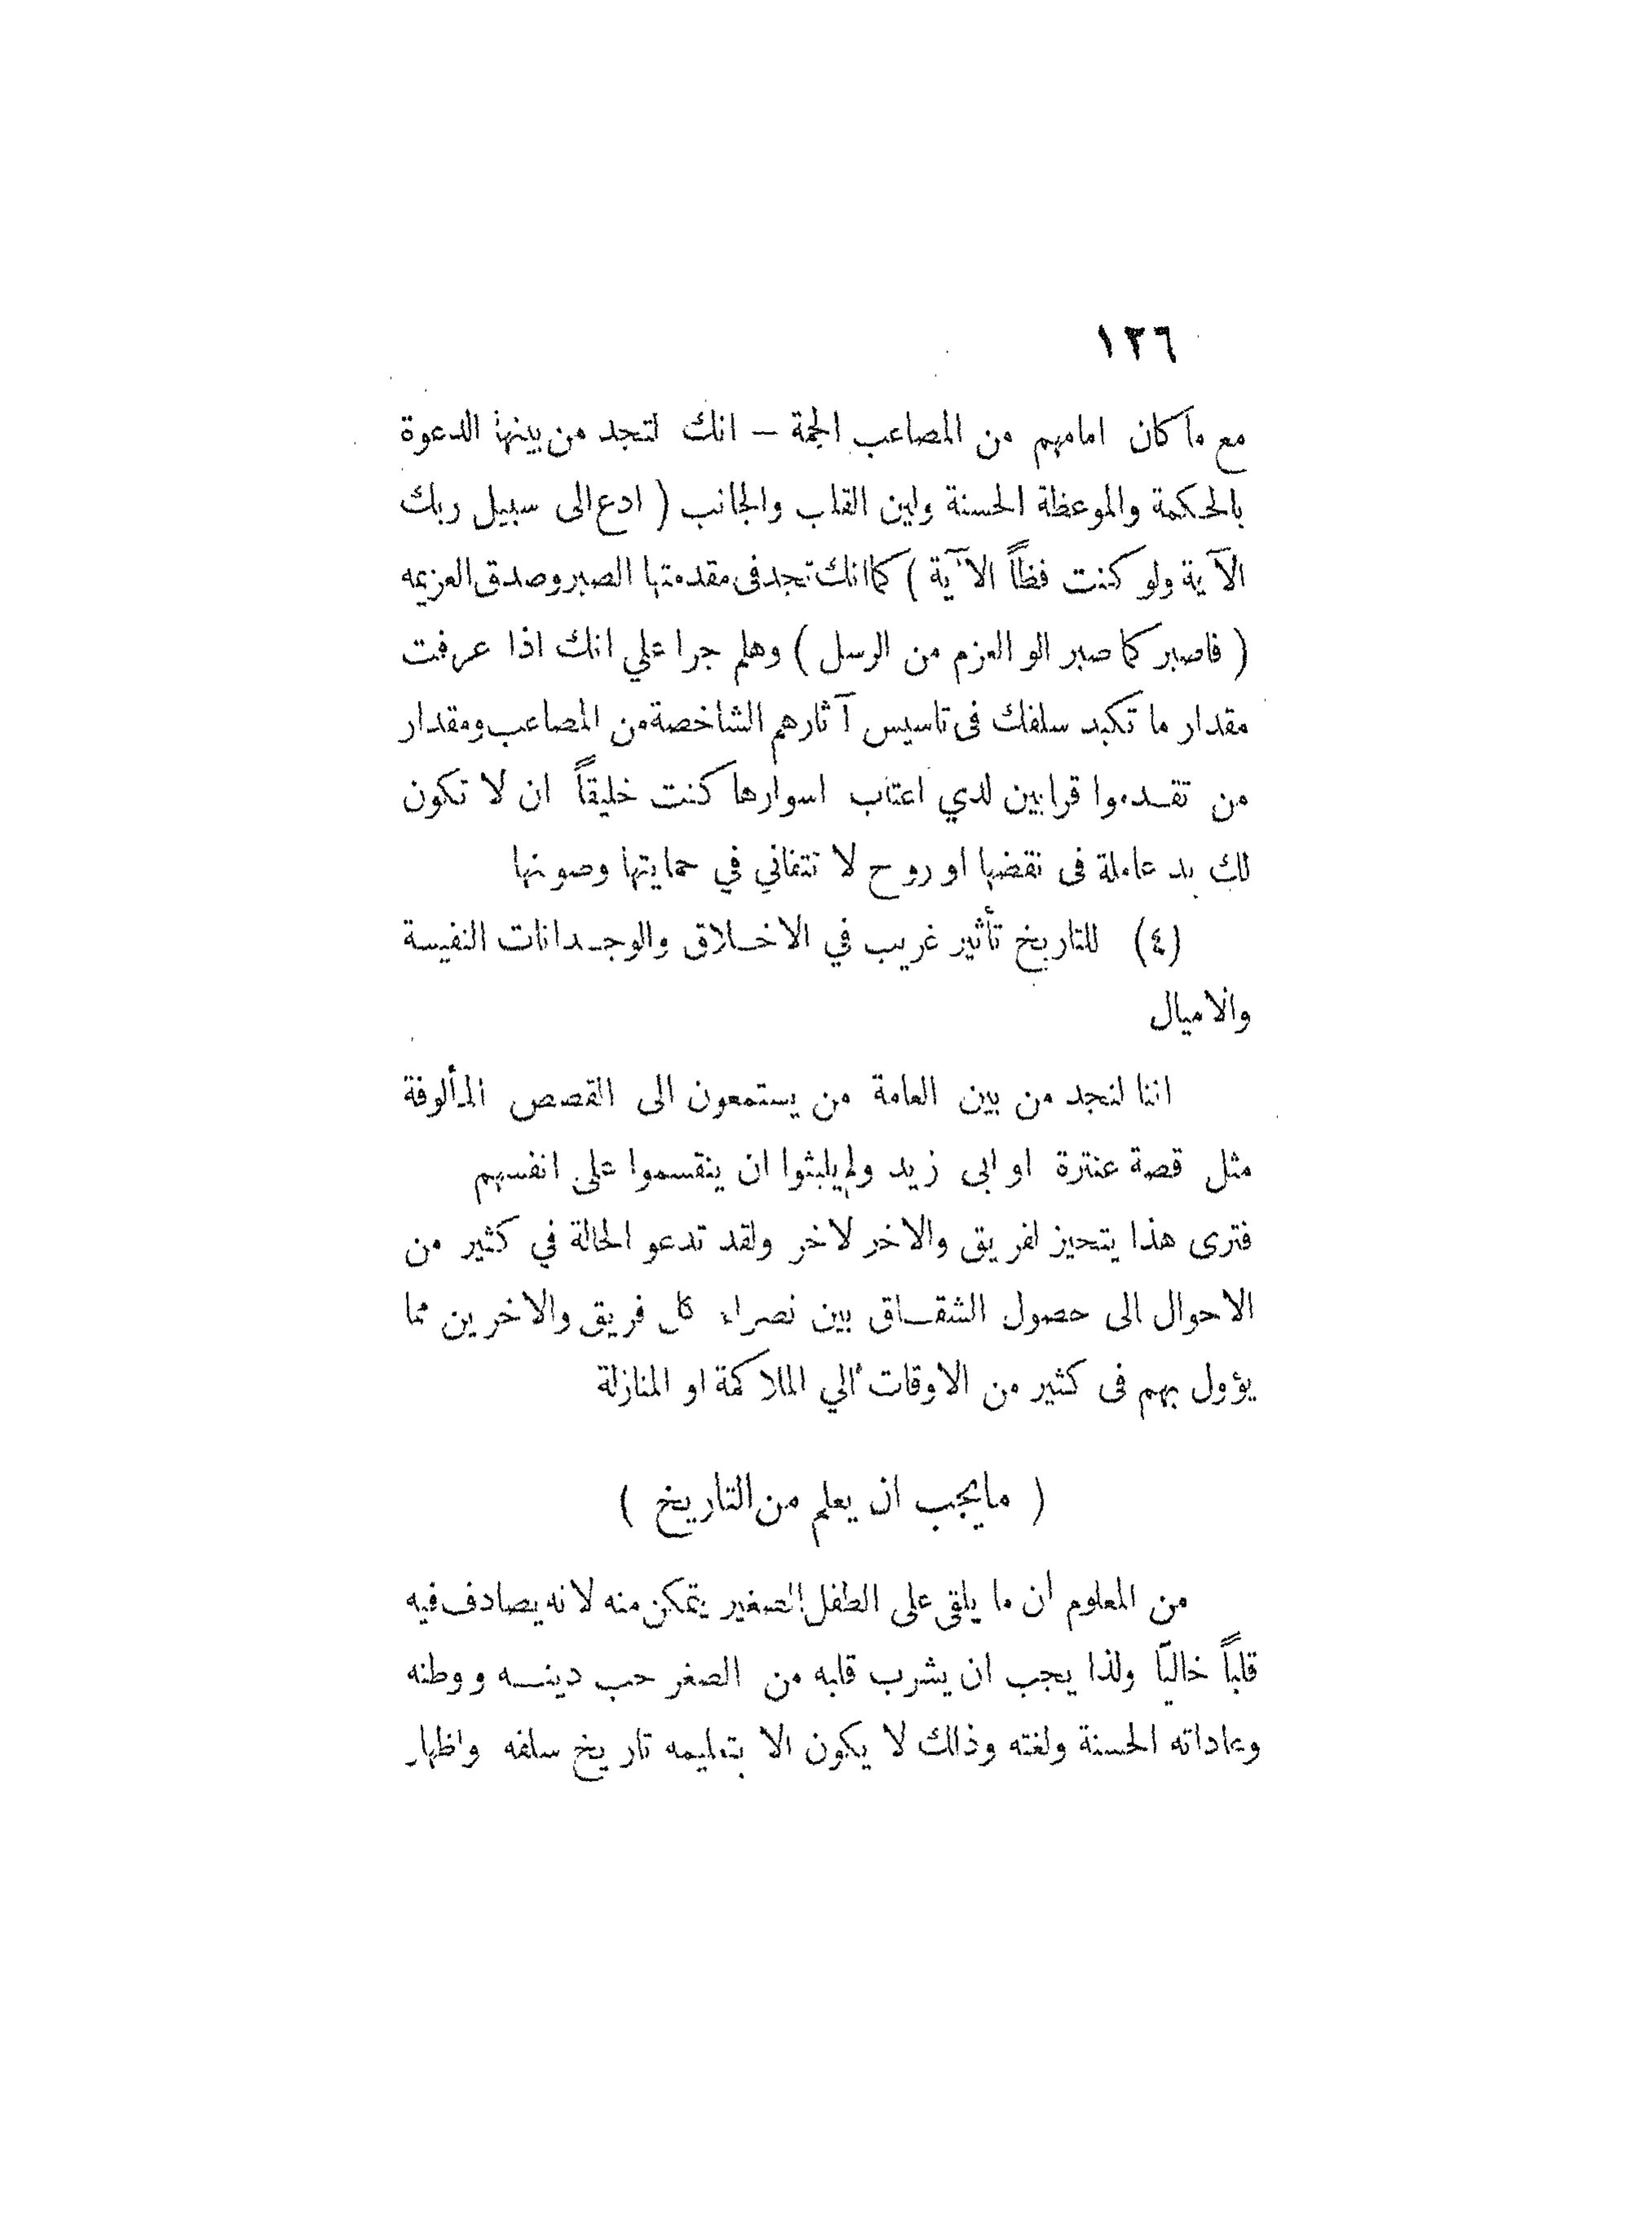 ١٢٦
مع ما كان امامهم من المصاعب الجمة – انك لتجد من بينها الدعوة
بالحكمة والموعظة الحسنة ولين القلب والجانب ( ادع الى سبيل ربك
الآية ولو كنت فظاً الآية ) كما انك تجد فى مقدمتها الصبر وصدق العزيمه
( فاصبر كما صبر الو العزم من الرسل ) وهلم جرا علي انك اذا عرفت
مقدار ما تكبد سلفك فى تاسيس آثارهم الشاخصة من المصاعب ومقدار
من تقدموا قرابين لدي اعتاب اسوارها كنت خليقاً ان لا تكون
لك يد عاملة فى نقضها او روح لا تتفاني في حمايتها وصونها
(٤) للتاريخ تأثير غريب في الاخلاق والوجدانات النفيسة
والاميال
اننا لنجد من بين العامة من يستمعون الى القصص المألوفة
مثل قصة عنترة او ابى زيد ولم يلبثوا ان ينقسموا على انفسهم
فترى هذا يتحيز لفريق والاخر لاخر ولقد تدعو الحالة في كثير من
الاحوال الى حصول الشقاق بين نصراء كل فريق والاخرين مما
يؤول بهم فى كثير من الاوقات الي الملاكمة او المنازلة
( ما يجب ان يعلم من التاريخ )
من المعلوم ان ما يلقى على الطفل الصغير يتمكن منه لانه يصادف فيه
قلباً خالياً ولذا يجب ان يشرب قلبه من الصغر حب دينه ووطنه
وعاداته الحسنة ولغته وذلك لا يكون الا بتعليمه تاريخ سلفه واظهار